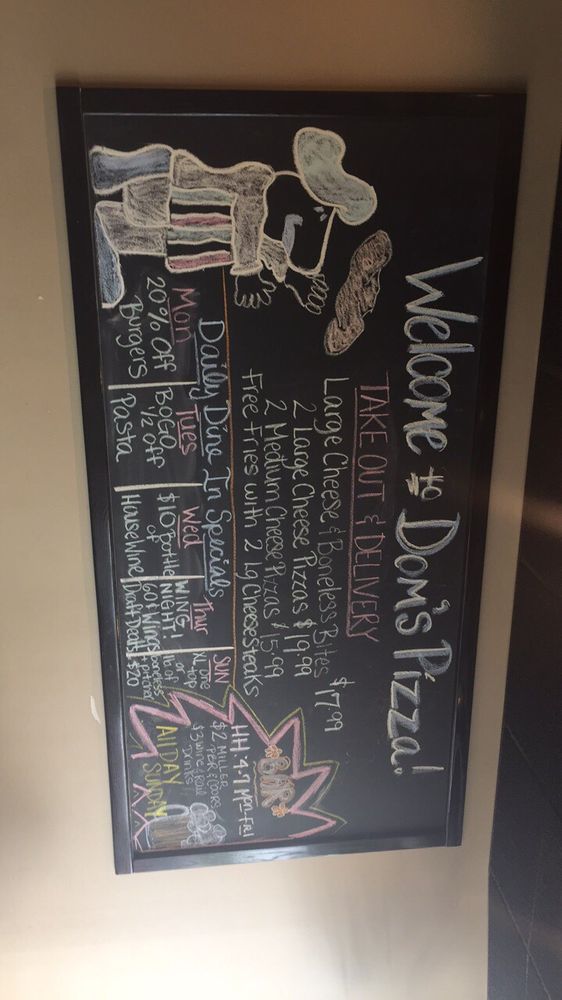 Welcome to Dom's Pizza!
TAKE OUT & DELIVERY
Large Cheese & Boneless Bites $17.99
2 Large Cheese Pizzas $19.99
2 Medium Cheese Pizzas $15.99
Free Fries with 2 Lg Cheesesteaks
Daily Dine In Specials
Mon
20% Off
Burgers
Tues
BOGO
1/2 OFF
Pasta
Wed
$10 Bottle
of
House Wine
Thur
WING
NIGHT!
60¢ Wings
Draft Deals
SUN
XL one
top
lb of
boneless
$20
BAR
HH 4-7 Mon-FRI
$2 MILLER
& COORS
$3 wine &
Drinks
All DAY
SUNDAY